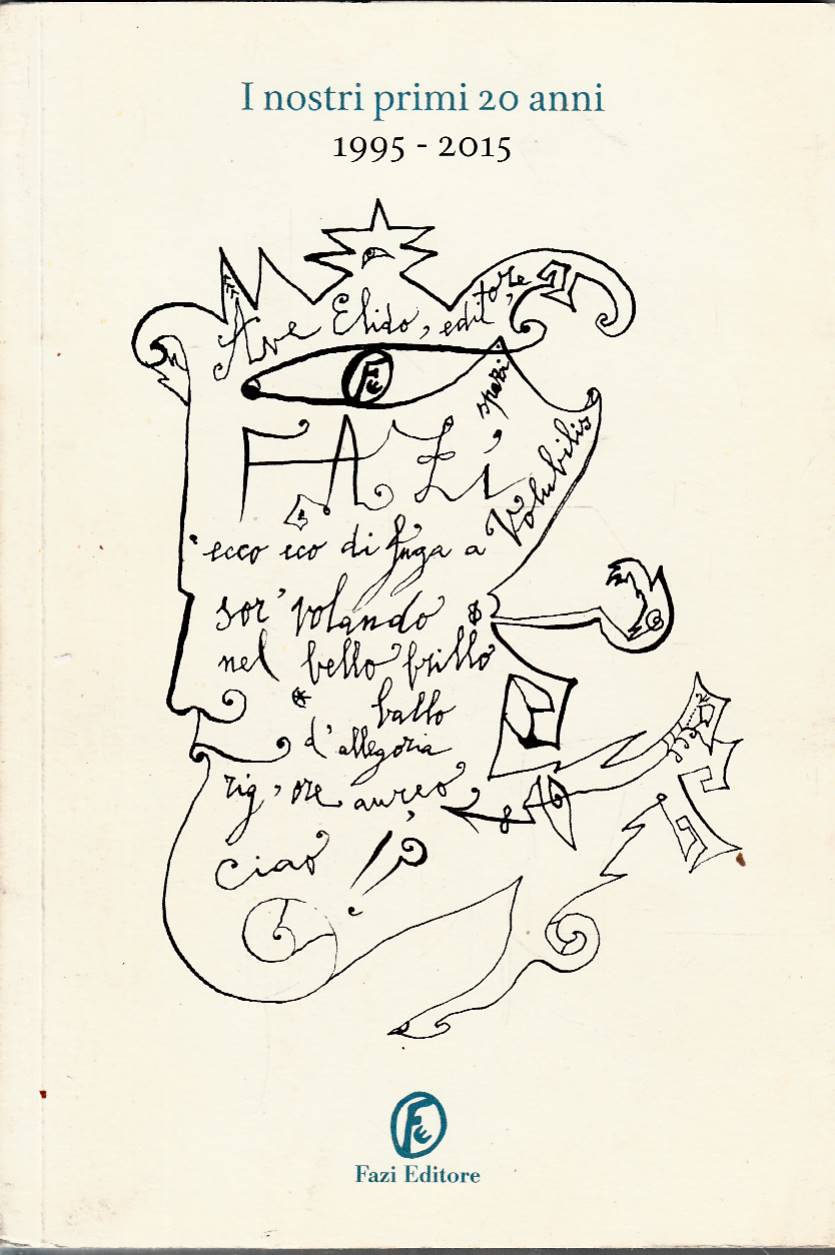 I nostri primi 20 anni
1995 - 2015
Ave Elido, editore,
Fe
spazi
FAZI,
Volubilis
ecco eco di fuga a
sor' volando
nel bello brillo
ballo
d'allegoria
rig, ore aureo,
ciao
Fe
Fazi Editore